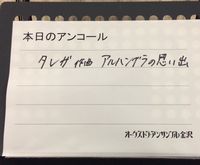 本日のアンコール
タレガ 作曲 アルハンブラの思い出
オーケストラ・アンサンブル金沢